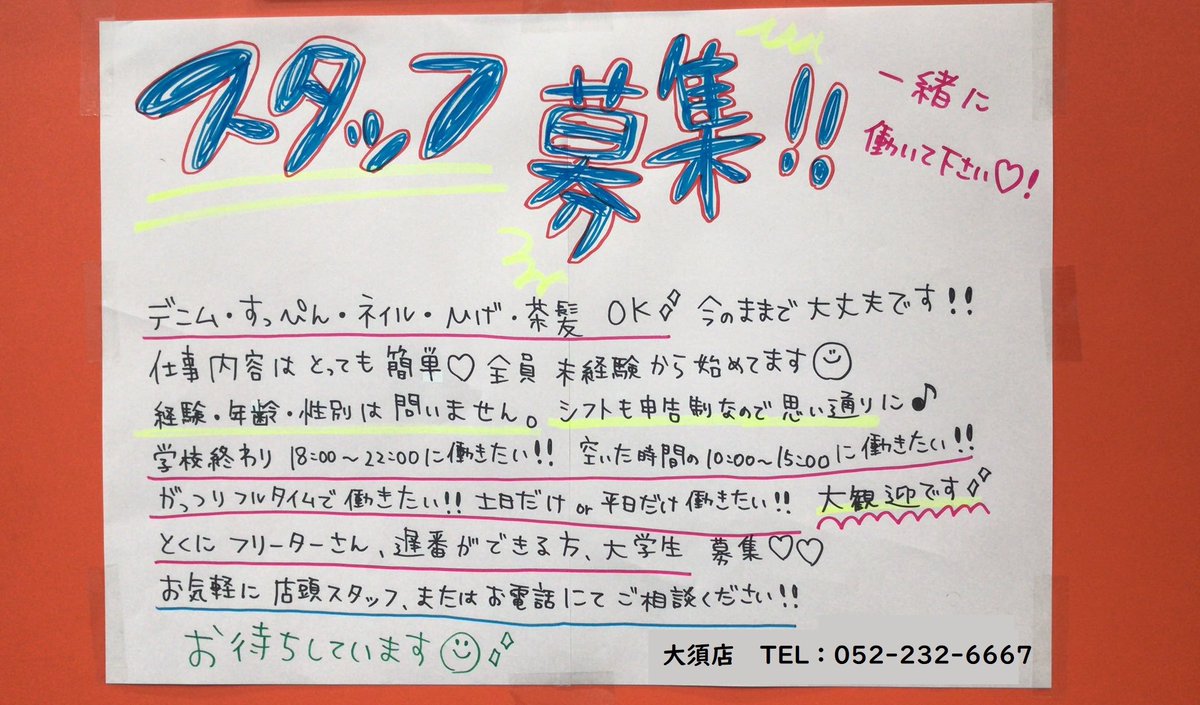 スタッフ募集!!
一緒に
働いて下さい♡!
デニム・すっぴん・ネイル・ひげ・茶髪 OK 今のままで大丈夫です!!
仕事内容はとっても簡単♡全員未経験から始めてます
経験・年齢・性別は問いません。シフトも申告制なので思い通りに♪
学校終わり 18:00〜22:00に働きたい!! 空いた時間の10:00〜15:00に働きたい!!
がっつりフルタイムで働きたい!! 土日だけ or 平日だけ働きたい!! 大観迎です
とくにフリーターさん、遅番ができる方、大学生 募集♡♡
お気軽に店頭スタッフ、またはお電話にてご相談ください!!
お待ちしています
大須店 TEL:052-232-6667